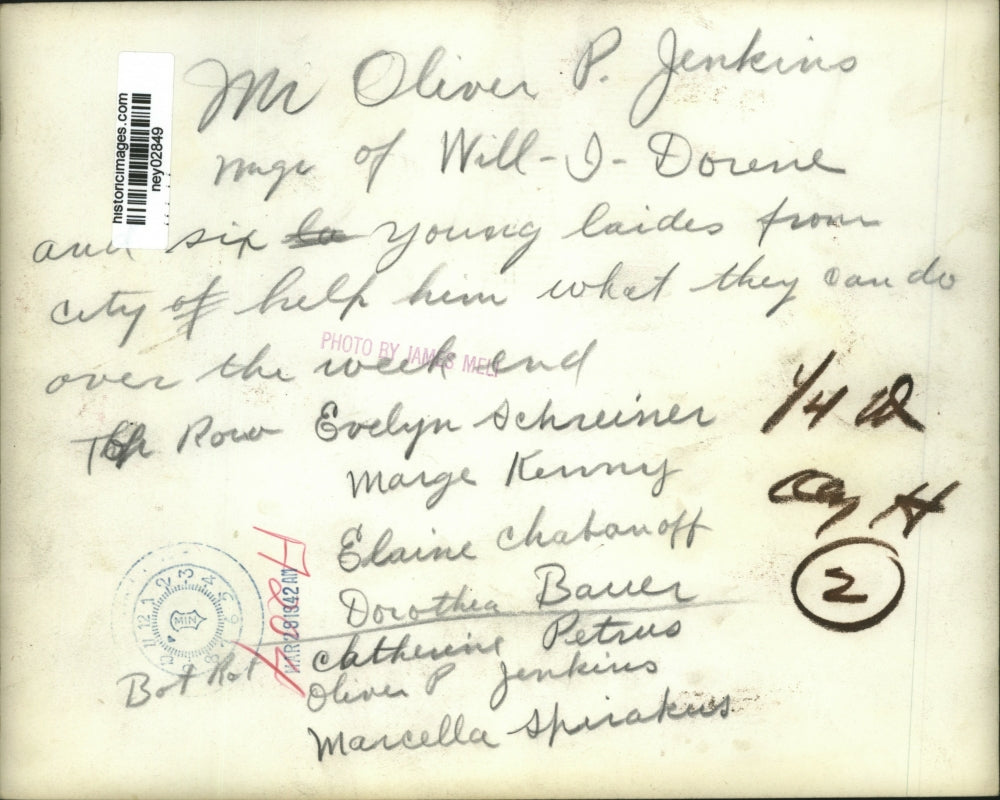 historicimages.com
ney02849
Mr Oliver P. Jenkins
mgr of Will-I-Dorene
and six la young laides from
city of help him what they can do
over the week end
PHOTO BY JAMES MELI
Top Row Evelyn Schreiner
Marge Kenny
Elaine Chabanoff
Dorothea Bauer
Catherine Petrus
Bot Rot
Oliver P Jenkins
Marcella Spirakus
1/4
H
2
MAR 28 1942 AM
12 1 2 3 4 5